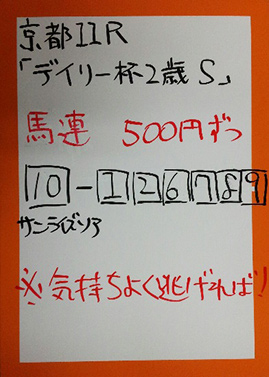 京都11R
「デイリー杯2歳S」
馬連 500円ずつ
10-1 2 6 7 8 9
サンライズソア
※気持ちよく逃げれば!